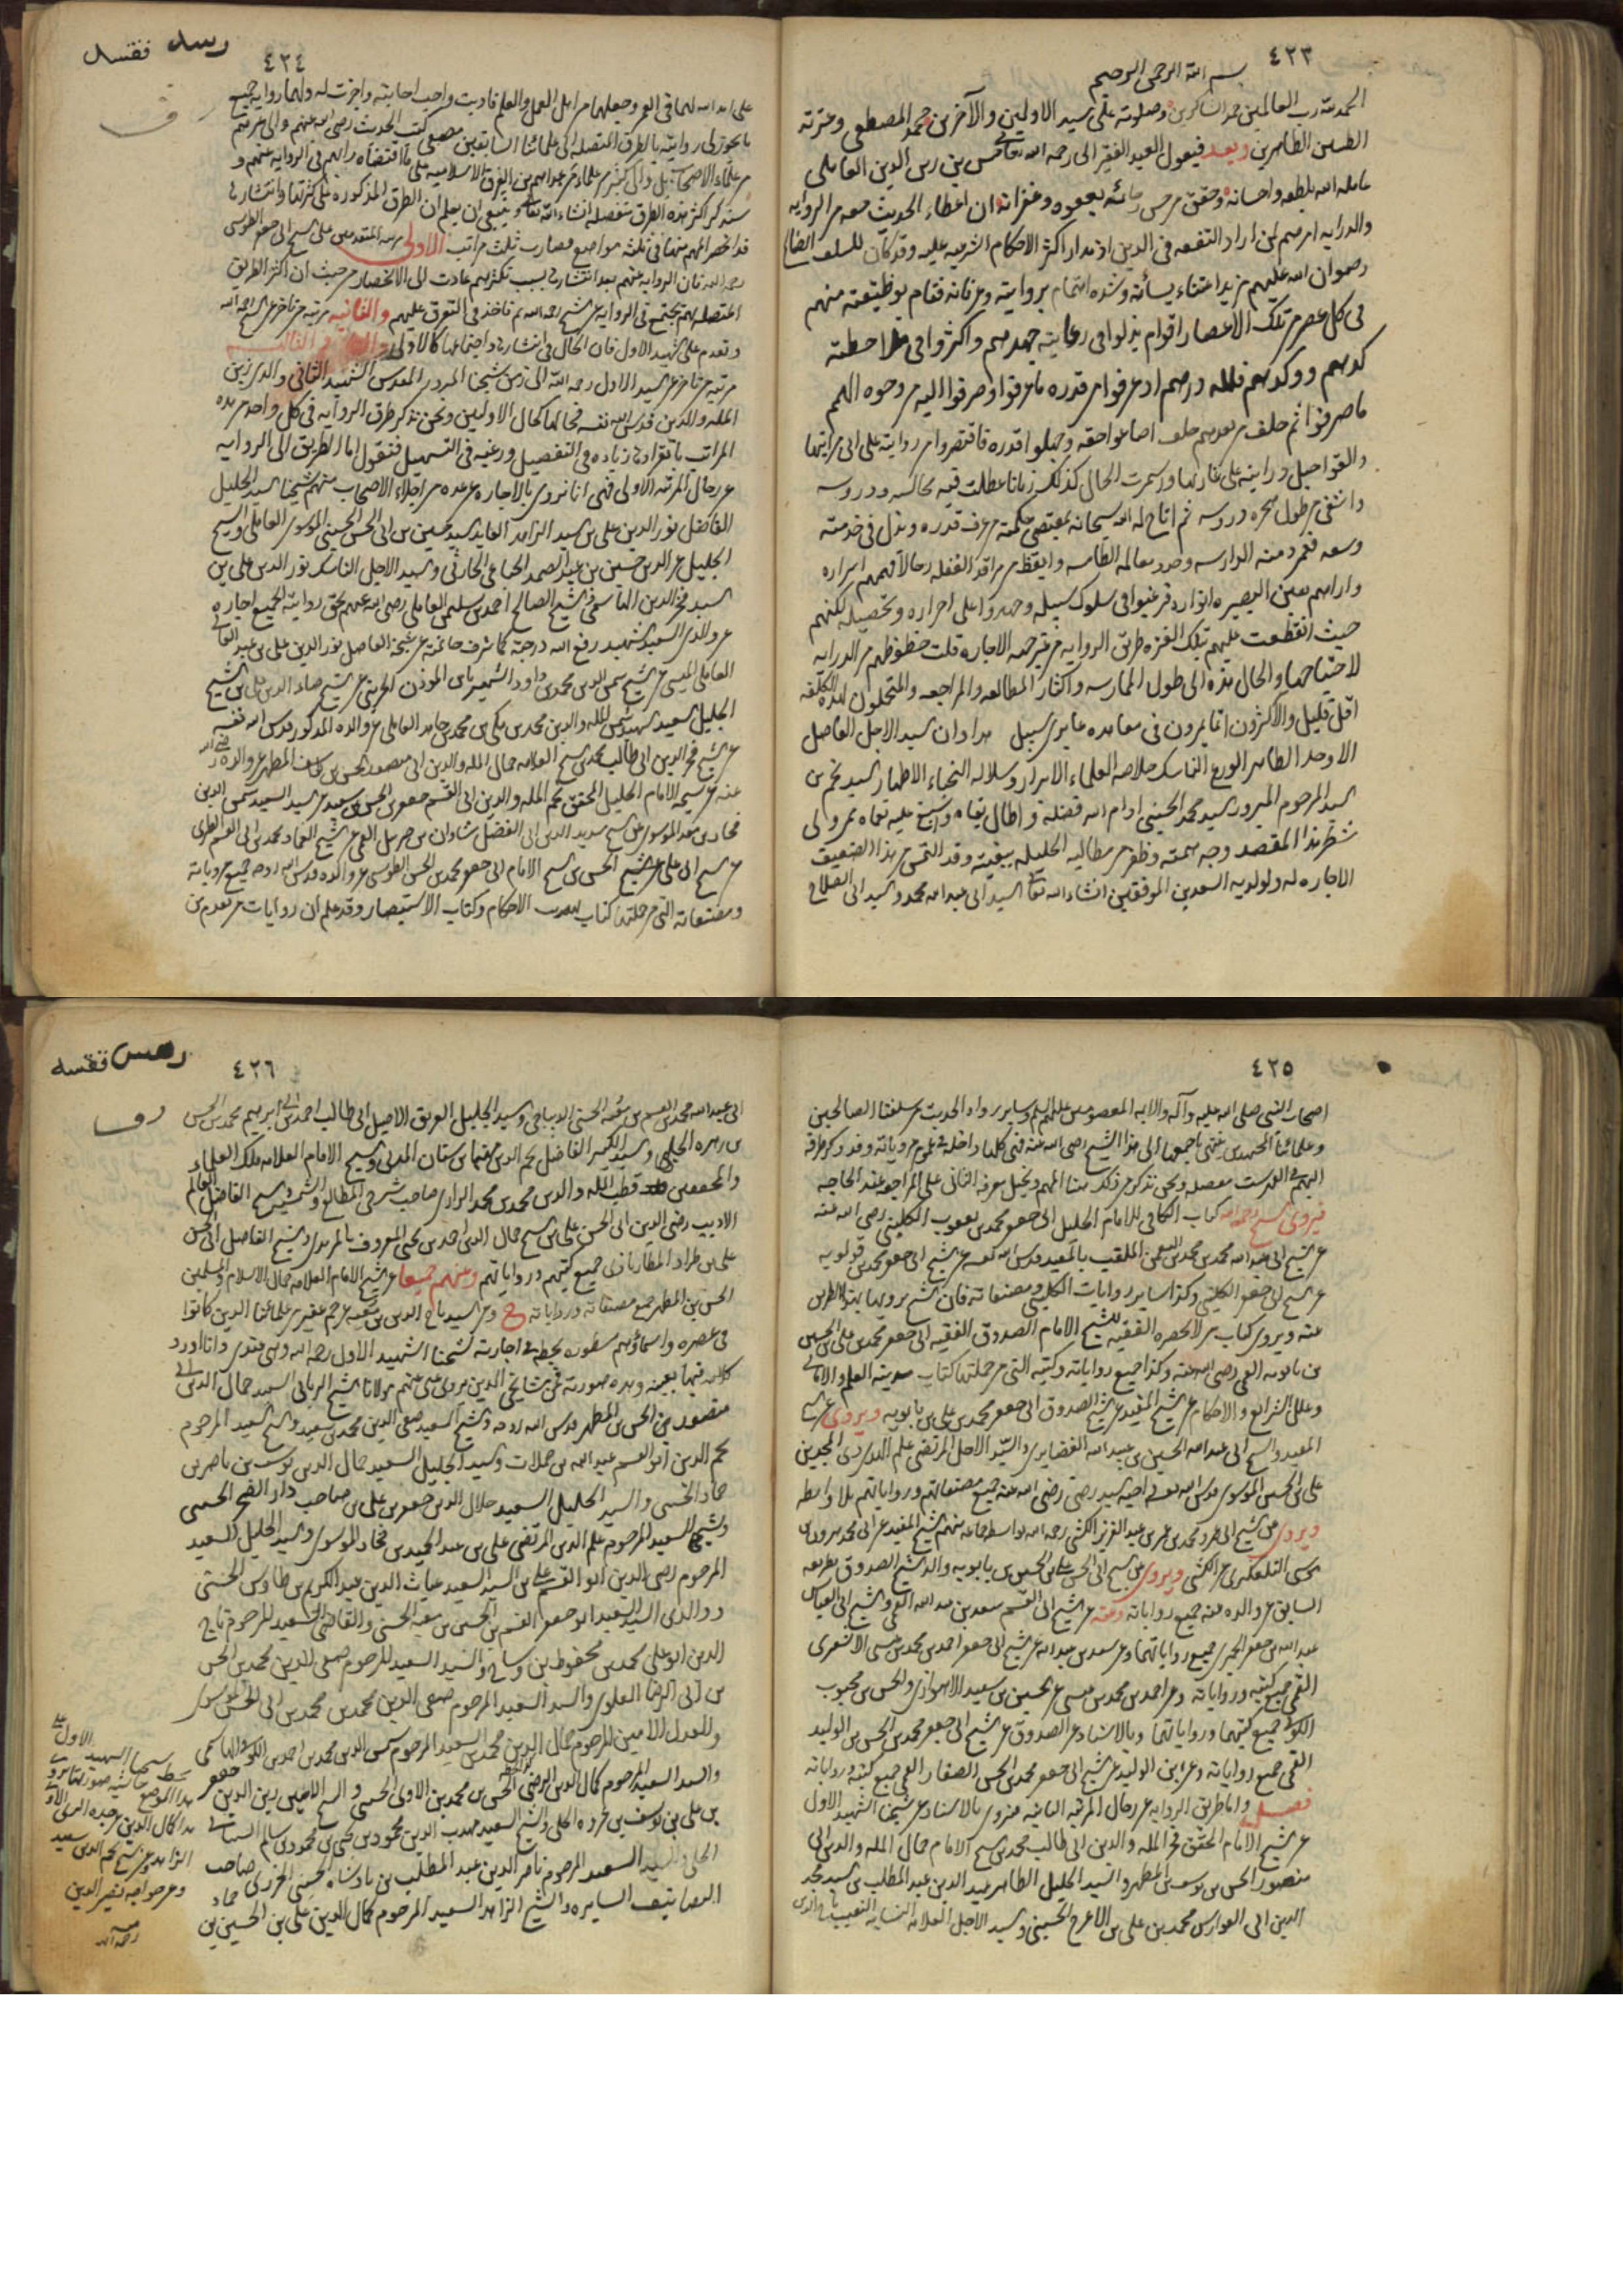 ٤٢٣
بسم الله الرحمن الرحيم
الحمد لله رب العالمين حمد الشاكرين وصلوته على سيد الاولين والآخرين محمد المصطفى وعترته
الطيبين الطاهرين وبعد فيقول العبد الفقير الى رحمة الله تعالى حسن بن زين الدين العاملى
عامله الله بلطفه واحسانه وحقق من حسن رجائه بعفوه وغفرانه ان اعطاء الحديث حقه من الرواية
والدراية امر مهم لمن اراد التفقه فى الدين اذ مدار اكثر الاحكام الشرعيه عليه وقد كان للسلف الصالح
رضوان الله عليهم مزيد اعتناء بشأنه وشدة اهتمام بروايته وعرفانه فقام بوظيفته منهم
فى كل عصر من تلك الاعصار اقوام بذلوا فى رعايته جهدهم واكثروا فى ملاحظته
كدهم ووكدهم فلله درهم اذ عرفوا من قدره ما عرفوا وصرفوا اليه من وجوه الهمم
ما صرفوا ثم خلف من بعدهم خلف اضاعوا حقه وجهلوا قدره فاقتصروا من روايته على ادنى مراتبها
والقوا حبل درايته على غاربها واستمرت الحال كذلك زمانا عطلت فيه مجالسه ودروسه
واشفى من طول هجره دروسه ثم اتاح له الله سبحانه بمقتضى حكمته من عرف قدره وبذل فى خدمته
وسعه فعمر دمنه الدارسه وجدد معالمه الطامسه وايقظ من مراقد الغفله رجالا فهمهم اسراره
واراهم بعين البصيره انواره فرغبوا فى سلوك سبيله وجهدوا على احرازه وتحصيله لكنهم
حيث انقطعت عليهم بتلك الفتره طريق الرواية من غير جهة الاجازه قلت حظوظهم من الدراية
لاحتياجها والحال هذه الى طول الممارسه واكثار المطالعه والمراجعه والمتحملون لهذه الكلفه
اقل قليل والاكثرون انما يمرون فى معاهده عابرى سبيل هذا وان السيد الاجل الفاضل
الاوحد الطاهر الورع الناسك خلاصة العلماء الابرار وسلالة النجباء الاطهار السيد نجم بن
السيد المرحوم المبرور السيد محمد الحسينى ادام الله فضله واطال بقاه واسبغ عليه نعماه ممن ولى
شطر هذا المقصد وجه همته وظفر من مطالبه الجليله ببغيته وقد التمس من هذا الضعيف
الاجازه له ولولديه السعيدين الموفقين انشاء الله تعالى السيد ابى عبدالله محمد والسيد ابى الصلاح
٤٢٤
على امد الله لهما فى العمر وجعلهما من اهل العمل والعلم فاديت واجب اجابته واجزت له ولهما رواية جميع
ما يجوز لى روايته بالطرق المتصله الى علمائنا السابقين مصنفى كتب الحديث رضى الله عنهم والى غيرهم
من علماء الاصحاب بل والى كثير من علماء من عداهم من الفرق الاسلاميه على ما اقتضاه رأيهم فى الروايه عنهم و
سنذكر اكثر هذه الطرق مفصله انشاء الله تعالى وينبغى ان يعلم ان الطرق المذكوره على كثرتها وانتشارها
قد انحصر المهم منها فى ثلثة مواضع فصارت ثلث مراتب الاولى مرتبة المتقدمين على الشيخ ابى جعفر الطوسى
رحمه الله فان الروايه عنهم بعد انتشارها بسبب تكثرهم عادت الى الانحصار من حيث ان اكثر الطريق
المتصله بهم تجتمع فى الروايه عن الشيخ رحمه الله ثم تاخذ فى التفرق عليهم والثانيه مرتبة من تاخر عن الشيخ رحمه الله
وتقدم على الشهيد الاول فان الحال فى انتشارها واجتماعها كالاولى الثالثه
مرتبة من تاخر عن الشهيد الاول رحمه الله الى زمن شيخنا المبرور المقدس الشهيد الثانى والدى زين
المله والدين قدس الله نفسه فحالها كحال الاوليين ونحن نذكر طرق الروايه فى كل واحد من هذه
المراتب بانفرادها زياده فى التفصيل ورغبه فى التسهيل فنقول اما الطريق الى الرواية
عن رجال المرتبة الاولى فهى انا نروى بالاجازه عن عده من اجلاء الاصحاب منهم شيخنا السيد الجليل
الفاضل نور الدين على بن السيد الزاهد العابد السيد حسين بن ابى الحسن الحسينى الموسوى العاملى والشيخ
الجليل عز الدين حسين بن عبد الصمد الحباعى الحارثى والسيد الاجل الناسك نور الدين على بن
السيد فخر الدين الهاشمى والشيخ الصالح احمد بن سليمن العاملى رضى الله عنهم بحق روايته الجميع اجازه
عن والدى السعيد الشهيد رفع الله درجته كما شرف خاتمته عن شيخه الفاضل نور الدين على بن عبد العالى
العاملى الميسى عن الشيخ شمس الدين محمد بن داود الشهير بابن المؤذن الجزينى عن الشيخ ضياء الدين على بن الشيخ
الجليل السعيد الشهيد شمس المله والدين محمد بن مكى بن محمد بن حامد العاملى عن والده المذكور قدس الله نفسه
عن الشيخ فخر الدين ابى طالب محمد بن الشيخ العلامه جمال المله والدين ابى منصور الحسن بن يوسف المطهر عن والده رضى الله
عنه عن شيخه الامام الجليل المحقق نجم المله والدين ابى القسم جعفر بن الحسن بن سعيد عن السيد السعيد شمس الدين
فخار بن معد الموسوى عن الشيخ سديد الدين ابى الفضل شاذان بن جبرئيل القمى عن الشيخ العماد محمد بن ابى القسم الطبرى
عن الشيخ ابى على عن الشيخ الحسن بن الشيخ الامام ابى جعفر محمد بن الحسن الطوسى عن والده قدس الله روحه جميع مروياته
ومصنفاته التى من جملتها كتاب تهذيب الاحكام وكتاب الاستبصار وقد علم ان روايات من تقدم من
٤٢٥
اصحاب النبى صلى الله عليه وآله والائمه المعصومين عليهم السلم وساير رواه الحديث من سلفنا الصالحين
وعلمائنا المجتهدين تنتهى باجمعها الى هذا الشيخ رضى الله عنه فهى كلها داخله فى عموم مروياته وقد ذكر طرقه
اليهم فى الفهرست مفصله ونحن نذكر من ذلك هنا المهم ونحيل معرفة الباقى على المراجعه عند الحاجه
فيروى الشيخ رحمه الله كتاب الكافى للامام الجليل ابى جعفر محمد بن يعقوب الكلينى رضى الله عنه
عن الشيخ ابى عبدالله محمد بن محمد بن النعمن الملقب بالمفيد قدس الله نفسه عن الشيخ ابى جعفر محمد بن قولويه
عن الشيخ ابى جعفر الكلينى وكذا ساير روايات الكلينى ومصنفاته فان الشيخ يرويها بهذا الطريق
عنه ويروى كتاب من لا يحضره الفقيه للشيخ الامام الصدوق الفقيه ابى جعفر محمد بن على بن الحسين
بن بابويه القمى رضى الله عنه وكذا جميع رواياته وكتبه التى من جملتها كتاب مدينة العلم والامالى
وعلل الشرائع والاحكام عن الشيخ المفيد عن الشيخ الصدوق ابى جعفر محمد بن على بن بابويه ويروى عن الشيخ
المفيد والشيخ ابى عبدالله الحسين بن عبيد الله الغضايرى والسيد الاجل المرتضى علم الهدى ذى المجدين
على بن الحسين الموسوى قدس الله نفسه واخيه السيد رضى رضى الله عنه جميع مصنفاتهم ورواياتهم بلا واسطه
ويروى عن الشيخ ابى عمرو محمد بن عمر بن عبد العزيز الكشى رحمه الله بواسطه جماعه منهم الشيخ المفيد عن ابى محمد هرون بن
موسى التلعكبرى عن الكشى ويروى عن الشيخ ابى الحسن على بن الحسين بن بابويه والد الشيخ الصدوق بطريقه
السابق عن والده عنه جميع رواياته وعنه عن الشيخ ابى القسم سعد بن عبدالله القمى والشيخ ابى العباس
عبدالله بن جعفر الحميرى جميع رواياتهما وعن سعد بن عبدالله عن الشيخ ابى جعفر احمد بن محمد بن عيسى الاشعرى
القمى جميع كتبه ورواياته وعن احمد بن محمد بن عيسى عن الحسين بن سعيد الاهوازى والحسن بن محبوب
الكوفى جميع كتبهما ورواياتهما وبالاسناد عن الصدوق عن الشيخ ابى جعفر محمد بن الحسن بن الوليد
القمى جميع رواياته وعن ابن الوليد عن الشيخ ابى جعفر محمد بن الحسن الصفار القمى جميع كتبه ورواياته
فصل واما طريق الروايه عن رجال المرتبه الثانيه فنروى بالاسناد عن شيخنا الشهيد الاول
عن الشيخ الامام المحقق فخر المله والدين ابى طالب محمد بن الشيخ الامام جمال المله والدين ابى
منصور الحسن بن يوسف بن المطهر والسيد الجليل الطاهر عميد الدين عبد المطلب بن السيد مجد
الدين ابى الفوارس محمد بن على بن الاعرج الحسينى والسيد الاجل العلامه النسابه النقيب تاج الدين
٤٢٦
ابى عبدالله محمد بن القسم بن معيه الحسنى الديباجى والسيد الجليل العريق الاصيل ابى طالب احمد بن ابى ابرهيم محمد بن الحسن
بن زهره الحلبى والسيد الكبير الفاضل نجم الدين مهنا بن سنان المدنى والشيخ الامام العلامه ملك العلماء
والمحققين قطب المله والدين محمد بن محمد الرازى صاحب شرحى المطالع والشمسيه والشيخ الفاضل العالم
الاديب رضى الدين ابى الحسن على بن الشيخ جمال الدين احمد بن يحيى المعروف بالمزيدى والشيخ الفاضل ابى الحسن
على بن طراد المطارباذى جميع كتبهم ورواياتهم وعنهم جميعا عن الشيخ الامام العلامه جمال الاسلام والمسلمين
الحسن بن المطهر جميع مصنفاته ورواياته ح وعن السيد تاج الدين بن معيه عن جم غفير من علمائنا الذين كانوا
فى عصره واسماؤهم مسطوره بخطه فى اجازته لشيخنا الشهيد الاول رحمه الله وهى عندى وانا اورد
كلامه فيها بعينه وهذه صورته فمن مشايخى الذين يروى عنى عنهم مولانا الشيخ الربانى السعيد جمال الدين ابى
منصور بن الحسن بن المطهر قدس الله روحه والشيخ السعيد صفى الدين محمد بن سعيد والشيخ السعيد المرحوم
نجم الدين ابو القسم عبدالله بن حملات والسيد الجليل السعيد جمال الدين يوسف بن ناصر بن
حماد الحسنى والسيد الجليل السعيد جلال الدين جعفر بن على بن صاحب دار الصخر الحسنى
وشيخى السعيد المرحوم علم الدين المرتضى على بن عبد الحميد بن فخار الموسوى والسيد الجليل السعيد
المرحوم رضى الدين ابو القسم على بن السيد السعيد غياث الدين عبد الكريم بن طاوس الحسنى
ووالدى السيد السعيد ابو جعفر القسم بن الحسين بن معيه الحسنى والقاضى السعيد المرحوم تاج
الدين ابو على محمد بن محفوظ بن وشاح والسيد السعيد المرحوم صفى الدين محمد بن الحسن
بن ابى الرضا العلوى والسيد السعيد المرحوم صفى الدين محمد بن محمد بن ابى الحسن الموسوى
والعدل الامين المرحوم جمال الدين محمد بن السعيد المرحوم شمس الدين محمد بن احمد بن الكوفى الهاشمى
والسيد السعيد المرحوم كمال الدين الرضى الحسن بن محمد بن الآوى الحسينى والشيخ الامين زين الدين جعفر
بن على بن يوسف بن عروه الحلى والشيخ السعيد مهذب الدين محمود بن يحيى بن محمود بن سالم الشيبانى
الحلى والسيد السعيد المرحوم ناصر الدين عبد المطلب بن بادشاه الحسينى الخزرى صاحب
التصانيف السايره والشيخ الزاهد السعيد المرحوم كمال الدين على بن الحسين بن حماد